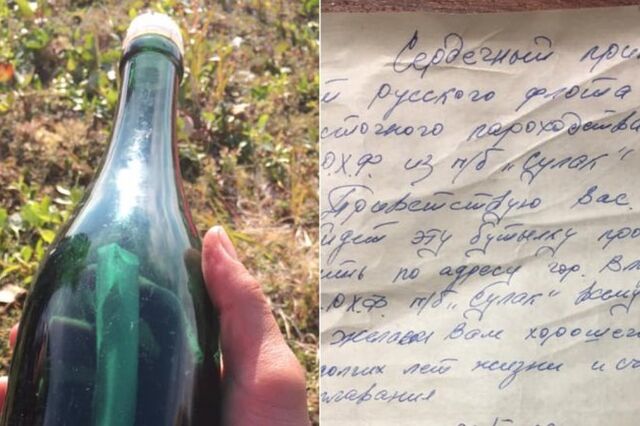 Сердечный при
й русского флота
сточного пароходства
.О.Х.Ф. из п/б „Сулак"
Приветствую Вас.
йдет эту бутылку про
ить по адресу гор. Вл
.О.Х.Ф. п/б „Сулак"
желаем Вам хорошего
олгих лет жизни и сч
лавания